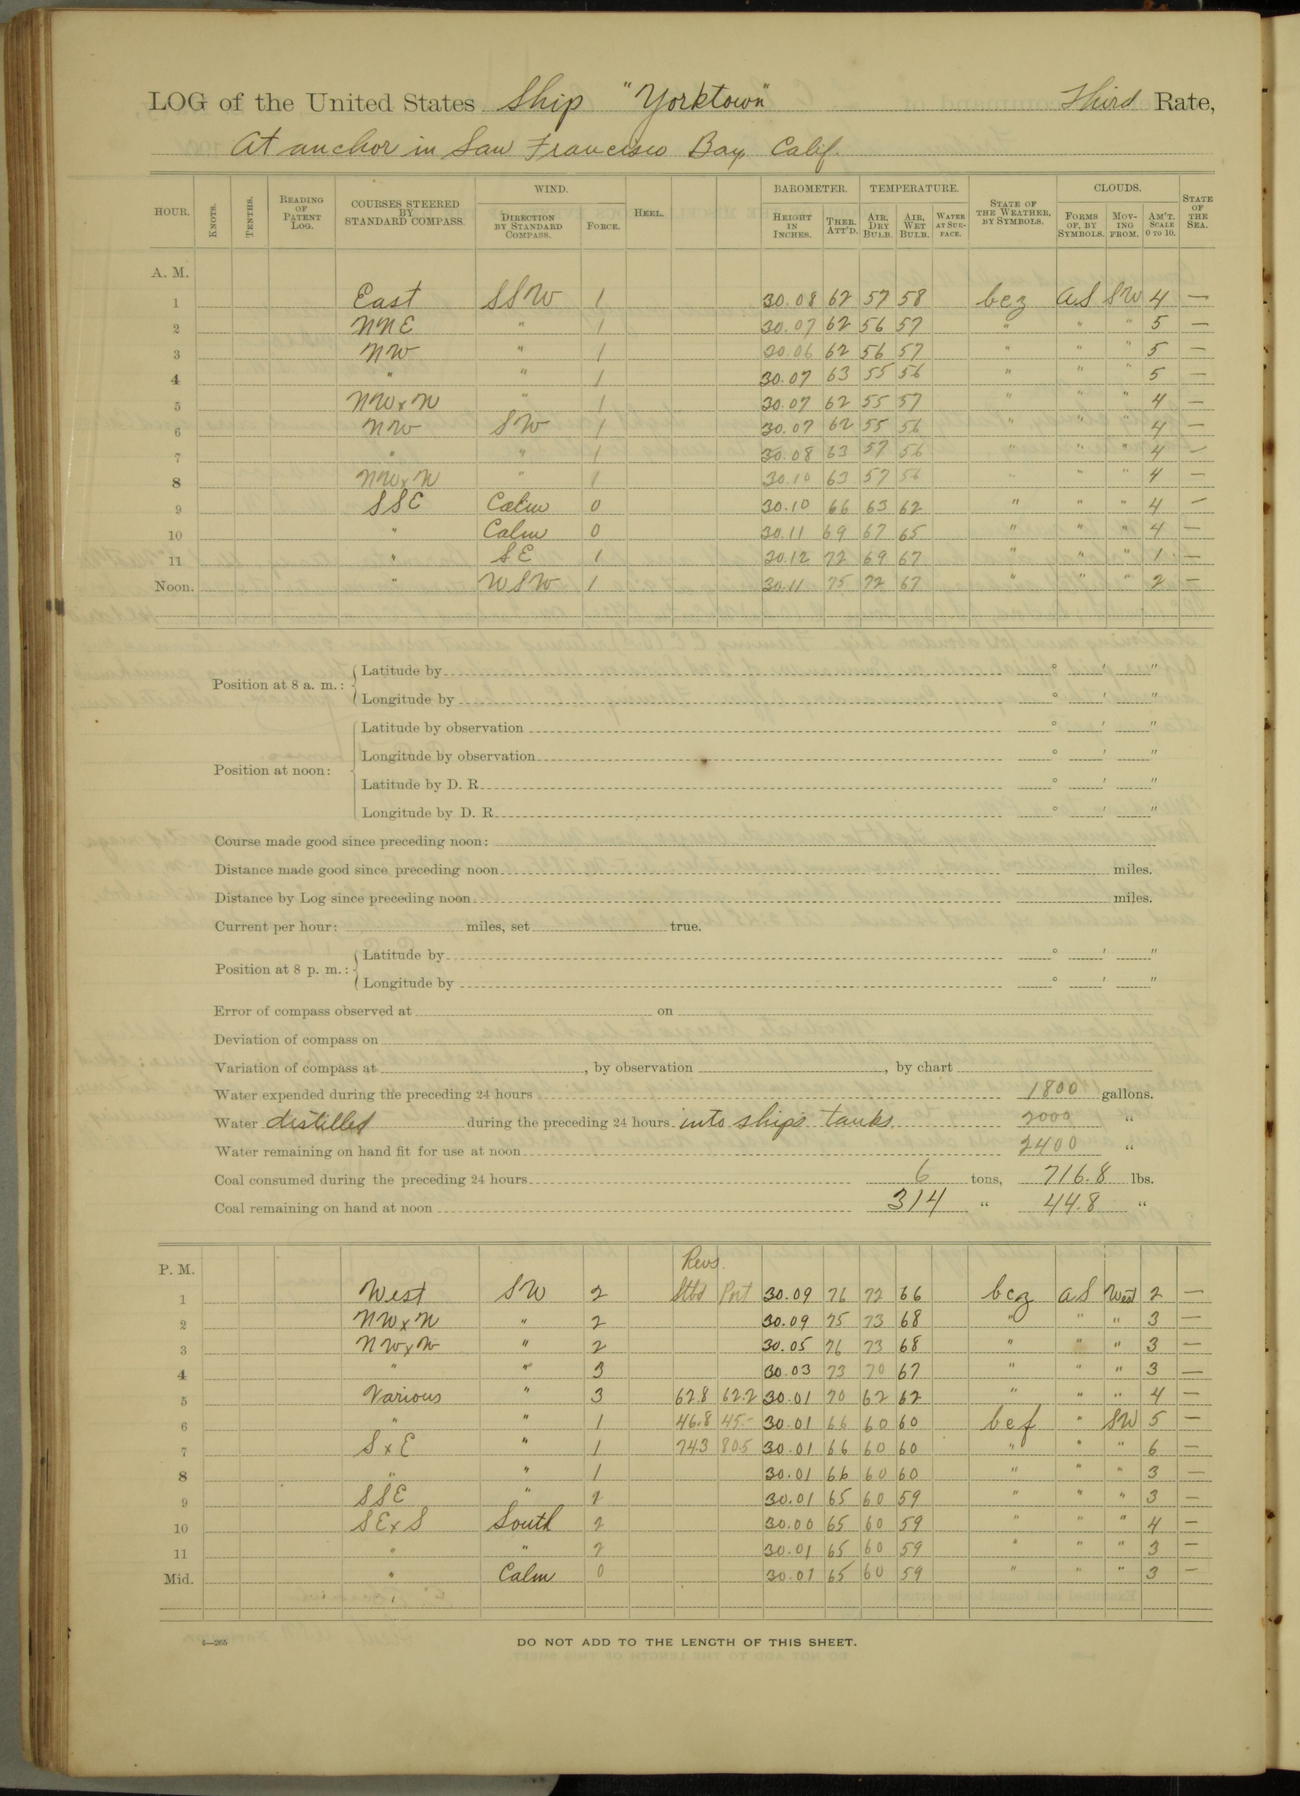 LOG of the United States Ship "Yorktown" Third Rate,
At anchor in San Francisco Bay Calif.
HOUR. KNOTS. TENTHS. READING OF PATENT LOG. COURSES STEERED BY STANDARD COMPASS. WIND. DIRECTION BY STANDARD COMPASS. FORCE. HEEL. BAROMETER. HEIGHT IN INCHES. THER. ATT'D. TEMPERATURE. AIR, DRY BULB. AIR, WET BULB. WATER AT SURFACE. STATE OF THE WEATHER, BY SYMBOLS. CLOUDS. FORMS OF, BY SYMBOLS. MOVING FROM. AM'T. SCALE 0 TO 10. STATE OF THE SEA.
A. M.
1 East SSW 1 30.08 62 57 58 bcz aS SW 4 —
2 NNE " 1 30.07 62 56 57 " " " 5 —
3 NW " 1 30.06 62 56 57 " " " 5 —
4 " " 1 30.07 63 55 56 " " " 5 —
5 NWxN " 1 30.07 62 55 57 " " " 4 —
6 NW SW 1 30.07 62 55 56 " " " 4 —
7 " " 1 30.08 63 57 56 " " " 4 —
8 NWxN " 1 30.10 63 57 56 " " " 4 —
9 SSE Calm 0 30.10 66 63 62 " " " 4 —
10 " Calm 0 30.11 69 67 65 " " " 4 —
11 " SE 1 30.12 72 69 67 " " " 1 —
Noon. " WSW 1 30.11 75 72 67 " " " 2 —
Position at 8 a. m.: Latitude by ° ' "
Longitude by ° ' "
Position at noon: Latitude by observation ° ' "
Longitude by observation ° ' "
Latitude by D. R. ° ' "
Longitude by D. R. ° ' "
Course made good since preceding noon:
Distance made good since preceding noon miles.
Distance by Log since preceding noon miles.
Current per hour: miles, set true.
Position at 8 p. m.: Latitude by ° ' "
Longitude by ° ' "
Error of compass observed at on
Deviation of compass on
Variation of compass at , by observation , by chart
Water expended during the preceding 24 hours 1800 gallons.
Water distilled during the preceding 24 hours into ships tanks 2000 "
Water remaining on hand fit for use at noon 2400 "
Coal consumed during the preceding 24 hours 6 tons, 716.8 lbs.
Coal remaining on hand at noon 314 " 44.8 "
P. M. Revs.
1 West SW 2 Stbd Port 30.09 76 72 66 bcz aS West 2 —
2 NWxN " 2 30.09 75 73 68 " " " 3 —
3 NWxN " 2 30.05 76 73 68 " " " 3 —
4 " " 3 30.03 73 70 67 " " " 3 —
5 Various " 3 62.8 62.2 30.01 70 62 62 " " " 4 —
6 " " 1 46.8 45.- 30.01 66 60 60 bcf " SW 5 —
7 SxE " 1 74.3 80.5 30.01 66 60 60 " " " 6 —
8 " " 1 30.01 66 60 60 " " " 3 —
9 SSE " 2 30.01 65 60 59 " " " 3 —
10 SExS South 2 30.00 65 60 59 " " " 4 —
11 " " 2 30.01 65 60 59 " " " 3 —
Mid. " Calm 0 30.01 65 60 59 " " " 3 —
4—265
DO NOT ADD TO THE LENGTH OF THIS SHEET.